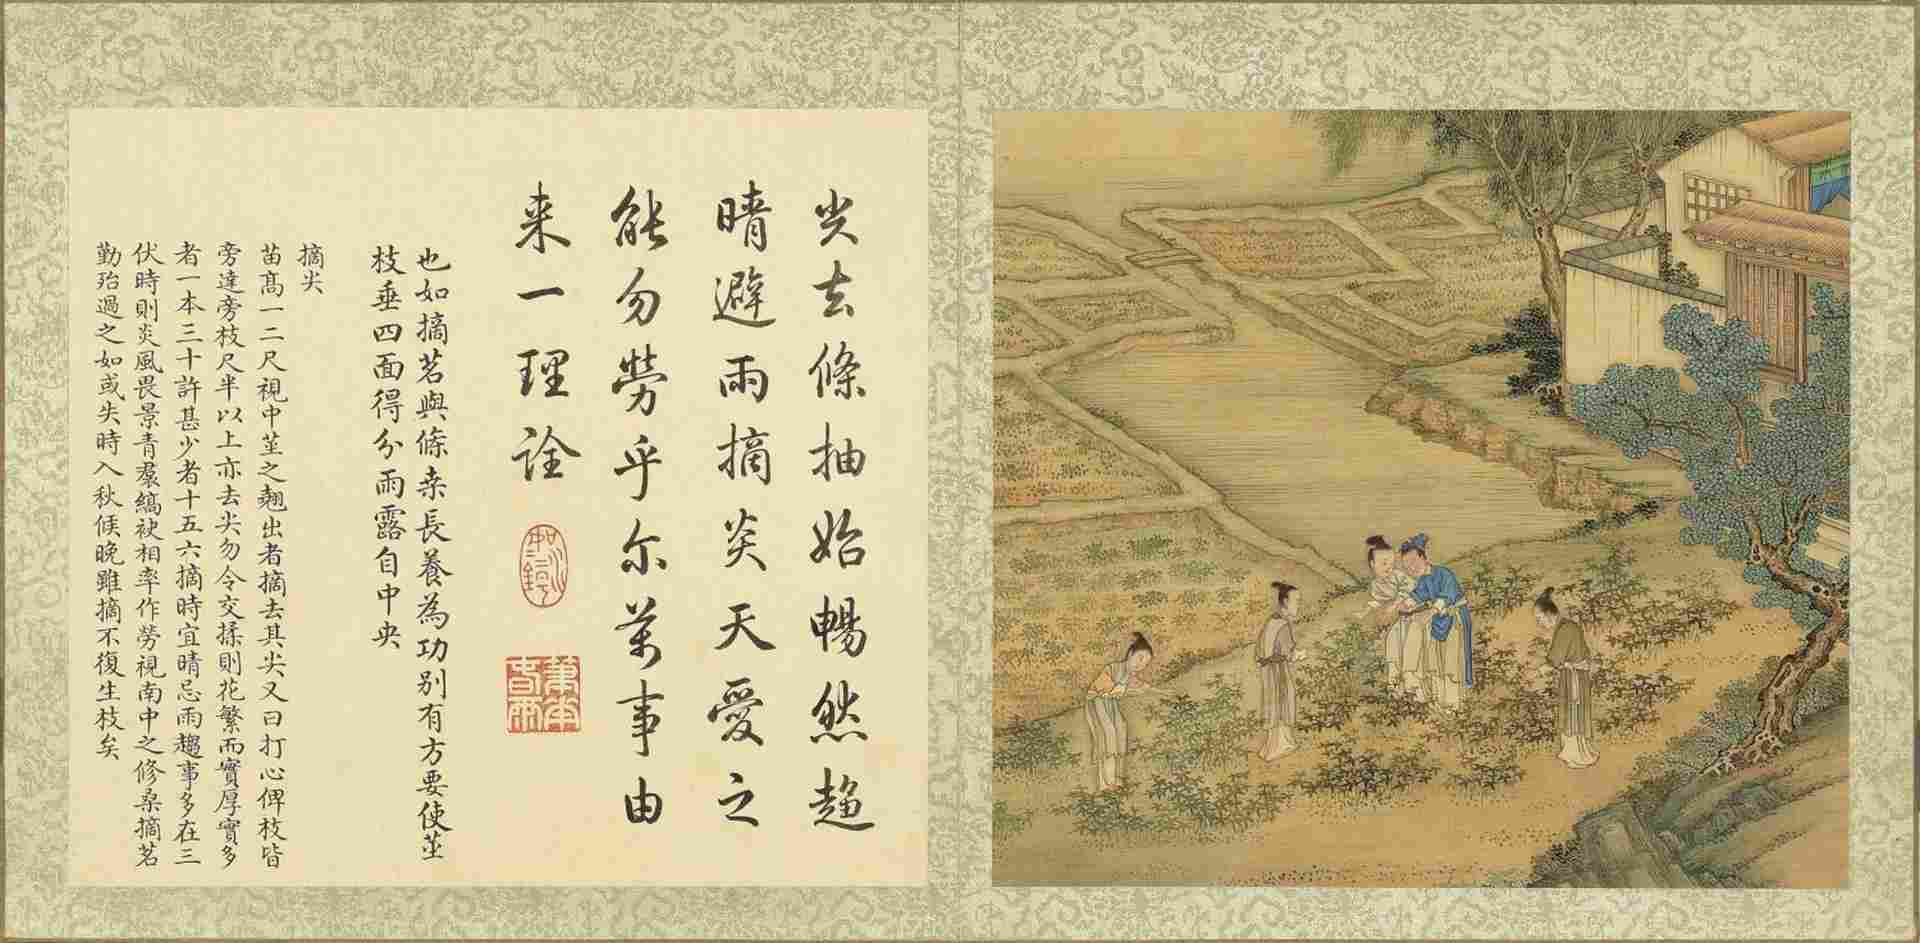 尖去條抽始暢然趨
晴避雨摘炎天愛之
能勿勞乎尓萬事由
来一理詮
也如摘茗與條桒長養為功别有方要使莖
枝垂四面得分雨露自中央
摘尖
苗髙一二尺視中莖之翹出者摘去其尖又曰打心俾枝皆
旁達旁枝尺半以上亦去尖勿令交揉則花繁而實厚實多
者一本三十許甚少者十五六摘時宜晴忌雨趨事多在三
伏時則炎風畏景青裠縞袂相率作勞視南中之修桑摘茗
勤殆過之如或失時入秋候晚雖摘不復生枝矣